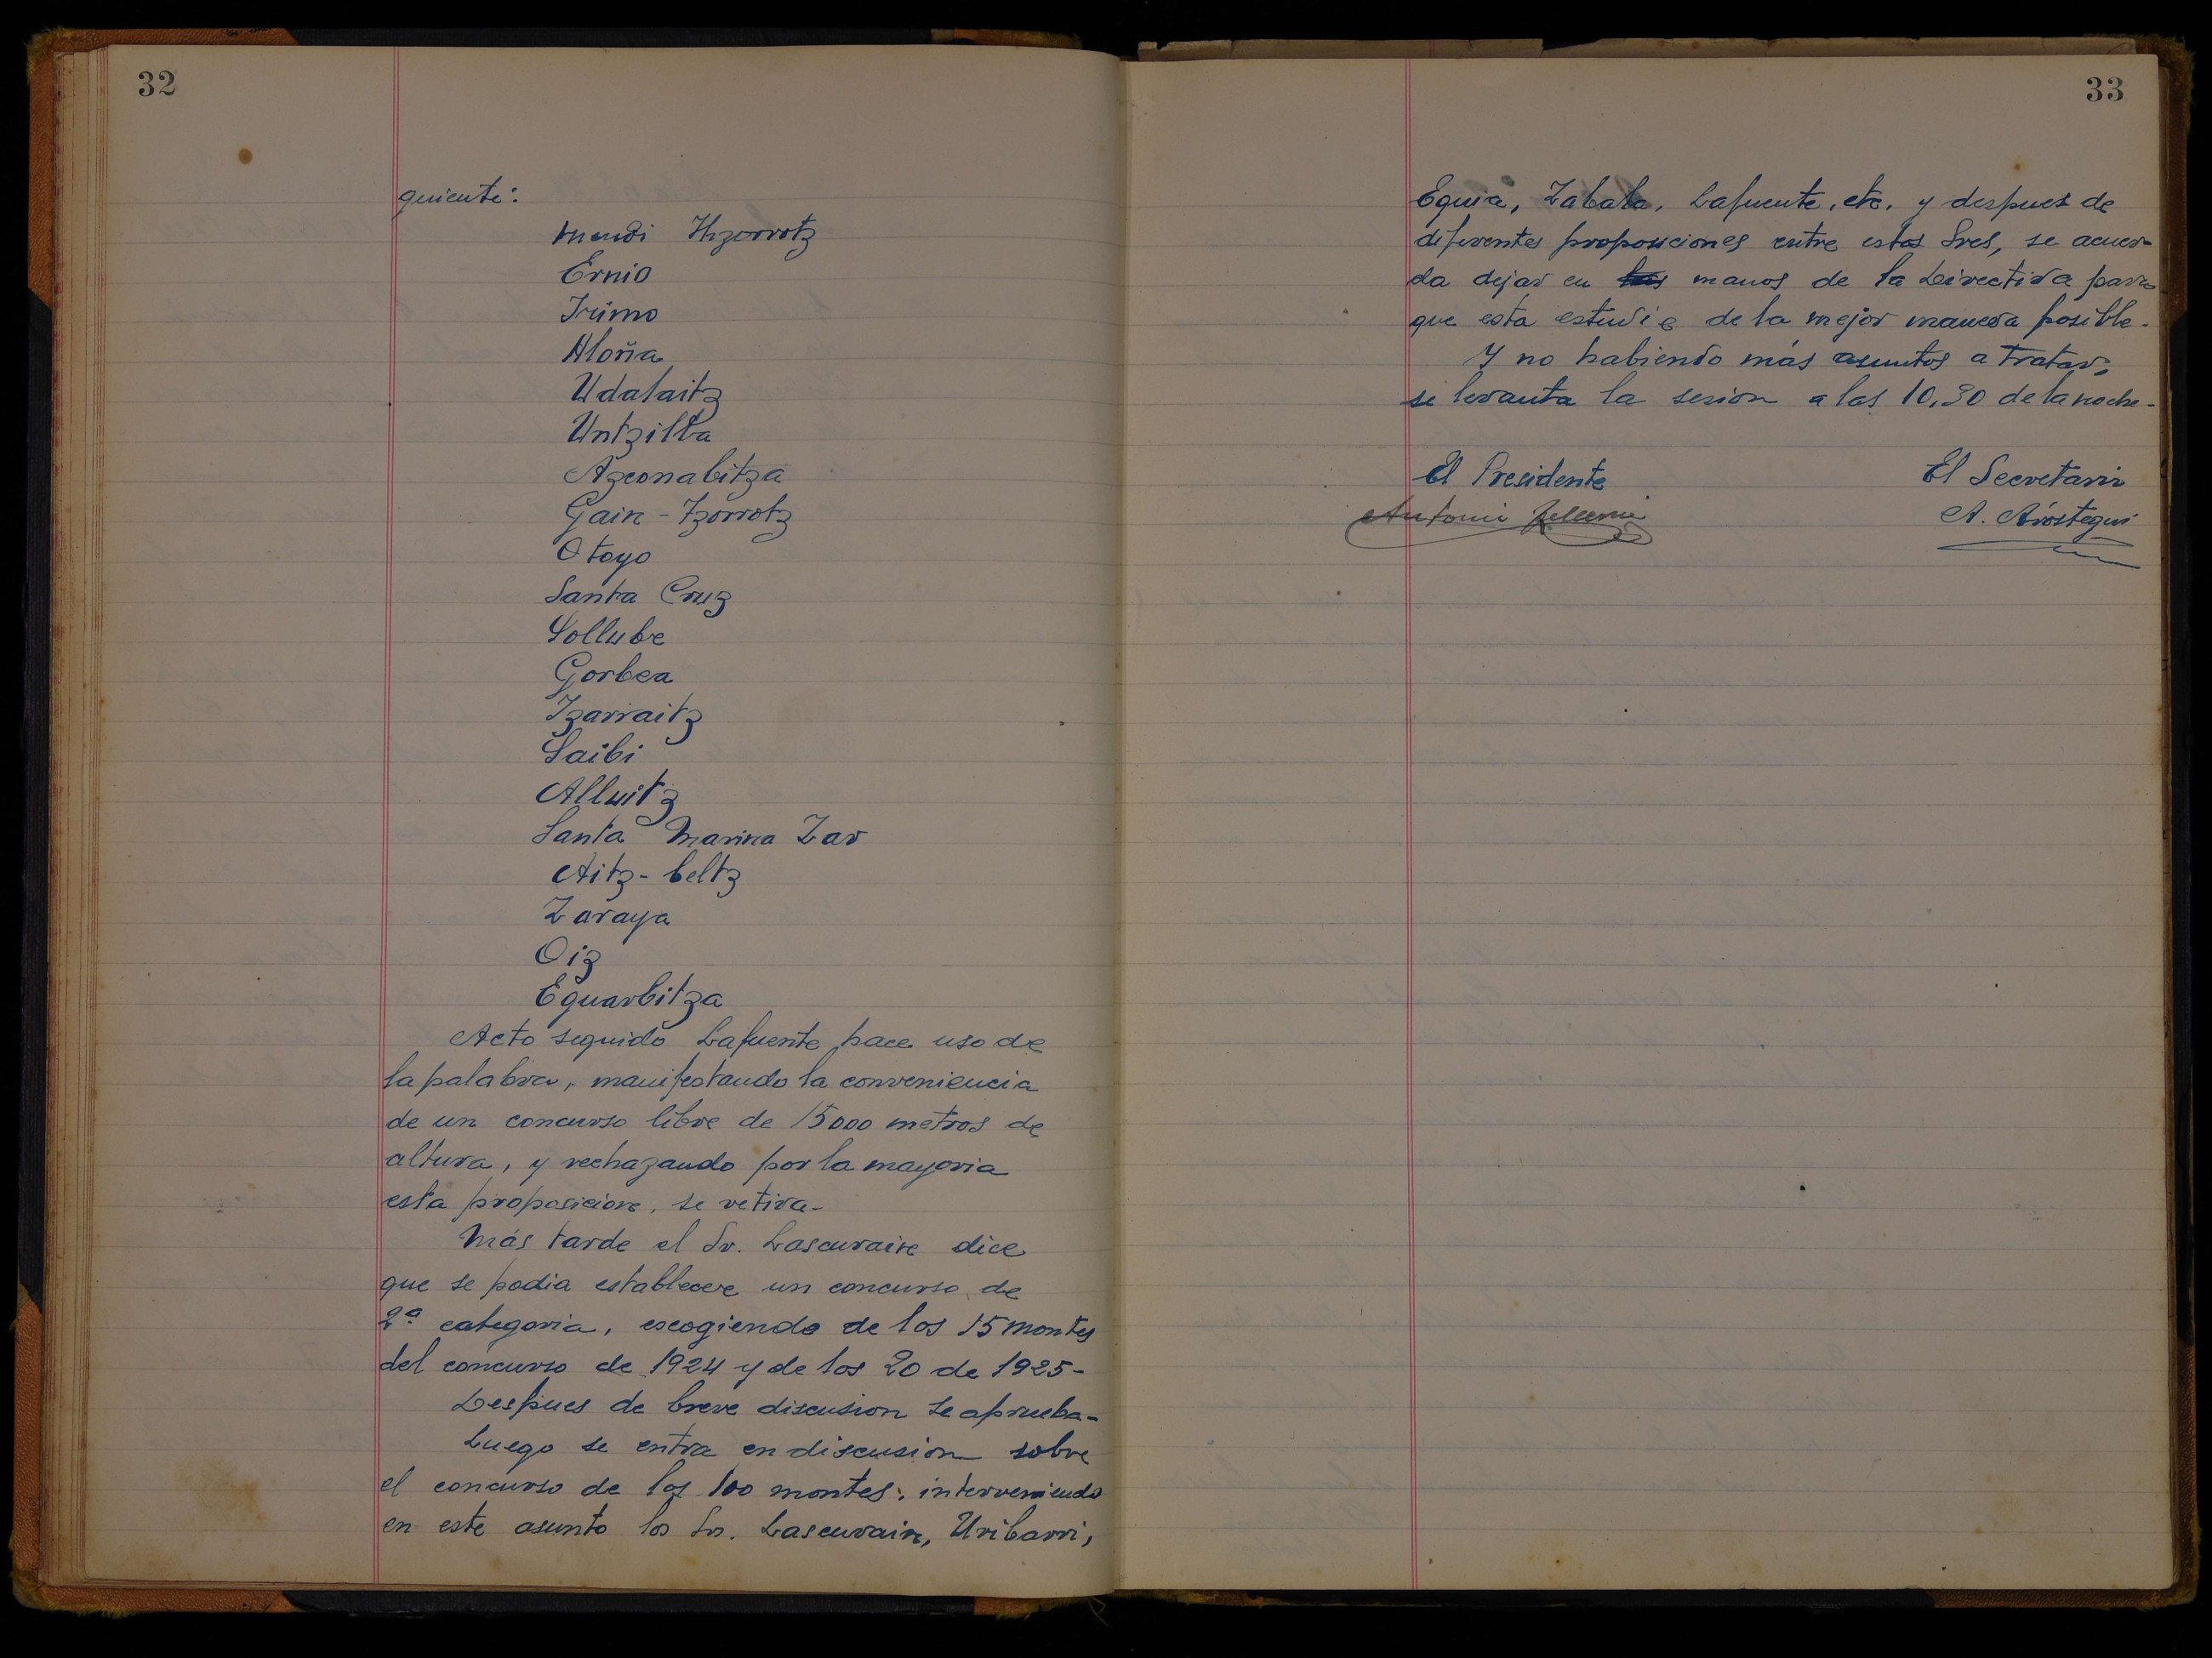 32
guiente:
Mendi
Ernio
Irimo
Aloña
Udalaitz
Untzilla
Azconabitza
Gain - Izorrotz
Otoyo
Santa Cruz
Sollube
Gorbea
Izarraitz
Saibi
Alluitz
Santa Marina Zar
Aitz - beltz
Zaraya
Oiz
Eguarbitza
Acto seguido Lafuente hace uso de
la palabra, manifestando la conveniencia
de un concurso libre de 15000 metros de
altura, y rechazando por la mayoria
esta proposicion, se retira-
Más tarde el Sr. Lascurain dice
que se podia establecer un concurso de
2ª categoria, escogiendo de los 15 montes
del concurso de 1924 y de los 20 de 1925-
Despues de breve discusion se aprueba-
Luego se entra en discusion sobre
el concurso de los 100 montes, interveniendo
en este asunto los Sr. Lascurain, Uribarri,
33
Eguia, Zabala, Lafuente, etc. y despues de
diferentes proposiciones entre estos Sres, se acuer-
da dejar en manos de la Directiva para
que esta estudie de la mejor manera posible.
Y no habiendo más asuntos a tratar,
se levanta la sesion a las 10,30 de la noche.
El Presidente
El Secretario
Antonio
A. Aróstegui